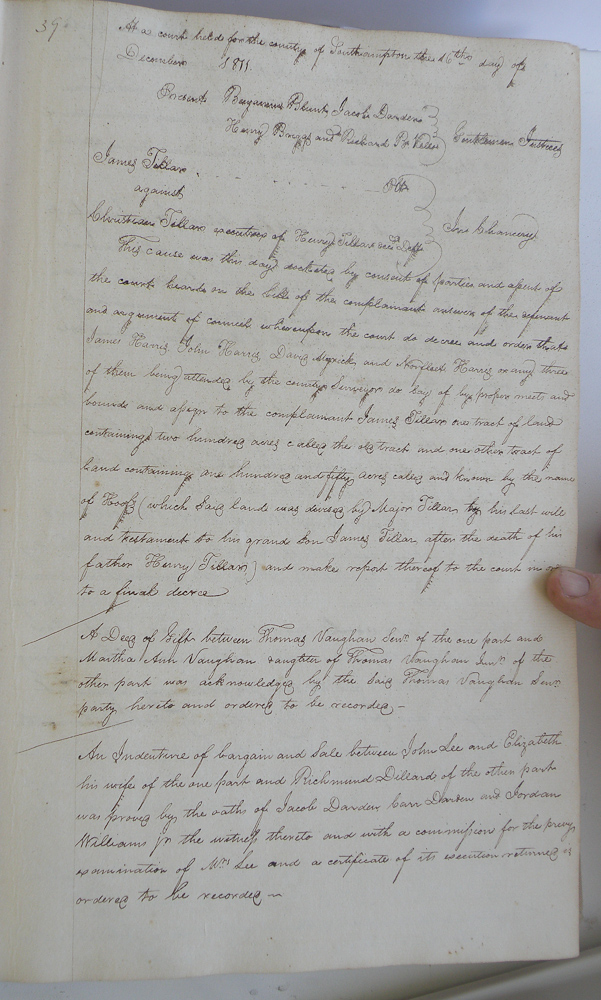 39
At a court held for the county of Southampton the 16th day of
December 1811
Present Benjamin Blunt, Jacob Darden
Henry Briggs and Richard P. Gentlemen Justices
James Tillar Plt
against
In Chancery
executrix of Henry Tillar decd Deft
This cause was this day docketed by consent of parties and assent of
the court heard on the bill of the complainant answer of the
and arguments of council whereupon the court do decree and order that
James Harris, John Harris, David Myrick, and Norfleet Harris or any three
of them being attended by the county Surveyor do lay of by proper meets and
bounds and assign to the complainant James Tillar one tract of land
containing two hundred acres called the old tract and one other tract of
land containing one hundred and fifty acres caled and known by the name
of (which said lands was devised by Major Tillar by his last will
and testament to his grand son James Tillar after the death of his
father Henry Tillar) and make report thereof to the court in
to a final decree
A Deed of Gift between Thomas Vaughan Senr. of the one part and
Martha Ann Vaughan daughter of Thomas Vaughan Junr. of the
other part was acknowledged by the said Thomas Vaughan Senr.
party hereto and ordered to be recorded —
An Indenture of bargain and Sale between John Lee and Elizabeth
his wife of the one part and Richmund Dillard of the other part
was proved by the oaths of Jacob Darden Darden and Jordan
Williams jr the witness thereto and with a commission for the privy
examination of Mrs Lee and a certificate of its execution returned is
ordered to be recorded —